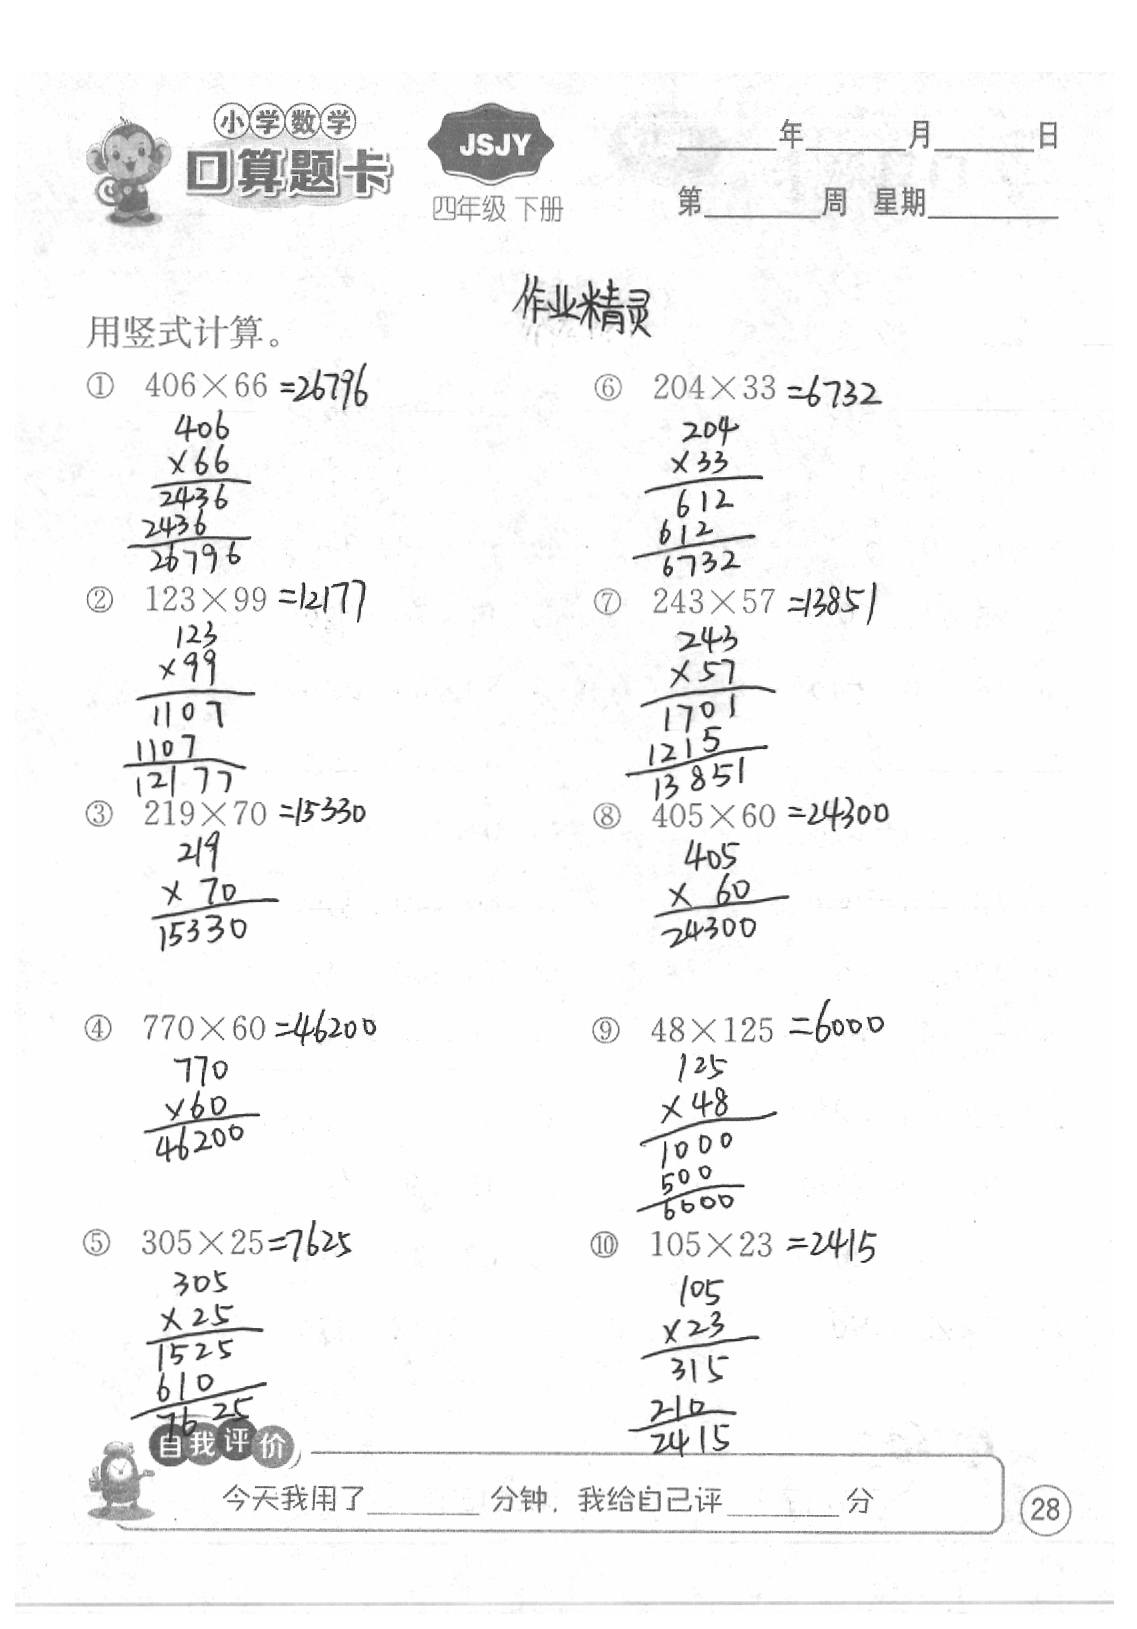 小学数学
口算题卡
JSJY
四年级 下册
____年____月____日
第____周 星期____
作业精灵
用竖式计算。
① 406×66=26796
406
×66
2436
2436
26796
② 123×99=12177
123
×99
1107
1107
12177
③ 219×70=15330
219
× 70
15330
④ 770×60=46200
770
×60
46200
⑤ 305×25=7625
305
×25
1525
610
7625
⑥ 204×33=6732
204
×33
612
612
6732
⑦ 243×57=13851
243
×57
1701
1215
13851
⑧ 405×60=24300
405
× 60
24300
⑨ 48×125=6000
125
×48
1000
500
6000
⑩ 105×23=2415
105
×23
315
210
2415
自我评价
今天我用了____分钟，我给自己评____分
28